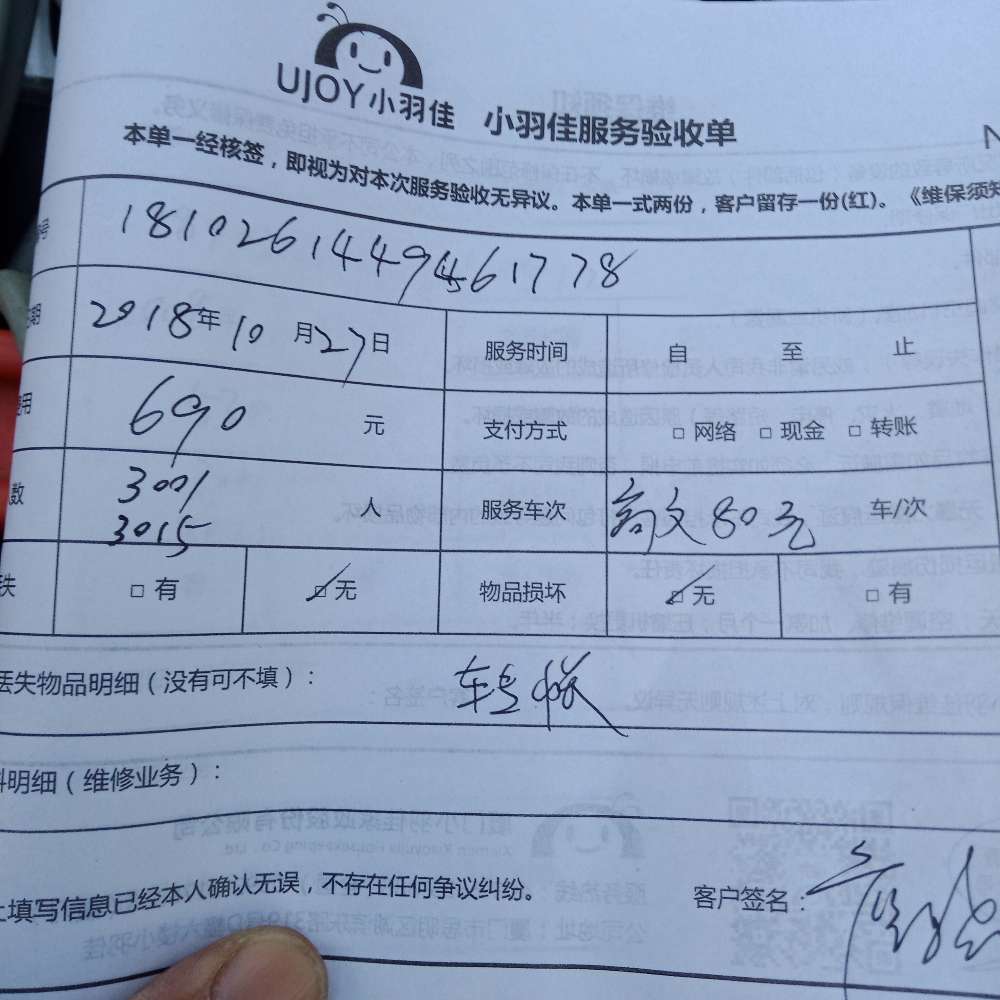 UJOY小羽佳 小羽佳服务验收单
本单一经核签，即视为对本次服务验收无异议。本单一式两份，客户留存一份(红)。《维保须知
号 181026144946 1778
期 2018年10月27日 服务时间 自 至 止
用 690 元 支付方式 □ 网络 □ 现金 □ 转账
数 3001 人 服务车次 80元 车/次
3015
失 □ 有 □ 无 物品损坏 □ 无 □ 有
丢失物品明细（没有可不填）：
料明细（维修业务）：
上填写信息已经本人确认无误，不存在任何争议纠纷。 客户签名：